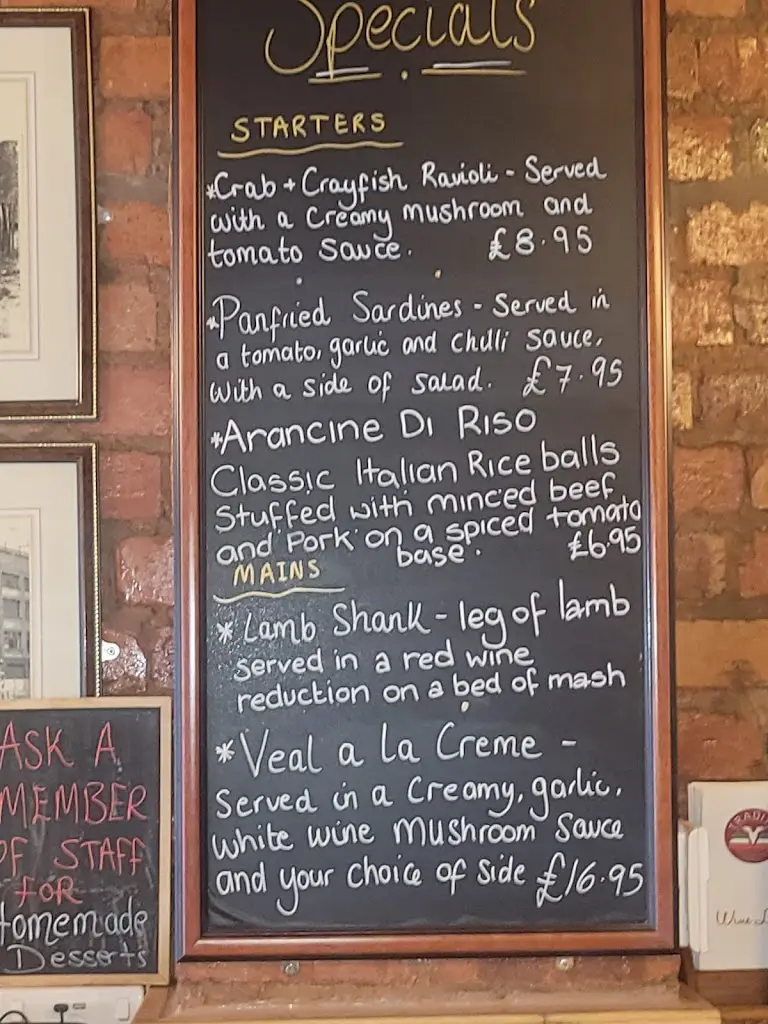 Specials
STARTERS
*Crab + Crayfish Ravioli - Served
with a Creamy mushroom and
tomato sauce. £8.95
*Panfried Sardines - Served in
a tomato, garlic and chilli sauce,
with a side of salad. £7.95
*Arancine Di Riso
Classic Italian Rice balls
Stuffed with minced beef
and Pork on a spiced tomato
base. £6.95
MAINS
* Lamb Shank - leg of lamb
served in a red wine
reduction on a bed of mash
* Veal a la Creme -
Served in a Creamy, garlic,
white wine mushroom sauce
and your choice of side £16.95
ASK A
MEMBER
OF STAFF
FOR
Homemade
Desserts
Wine